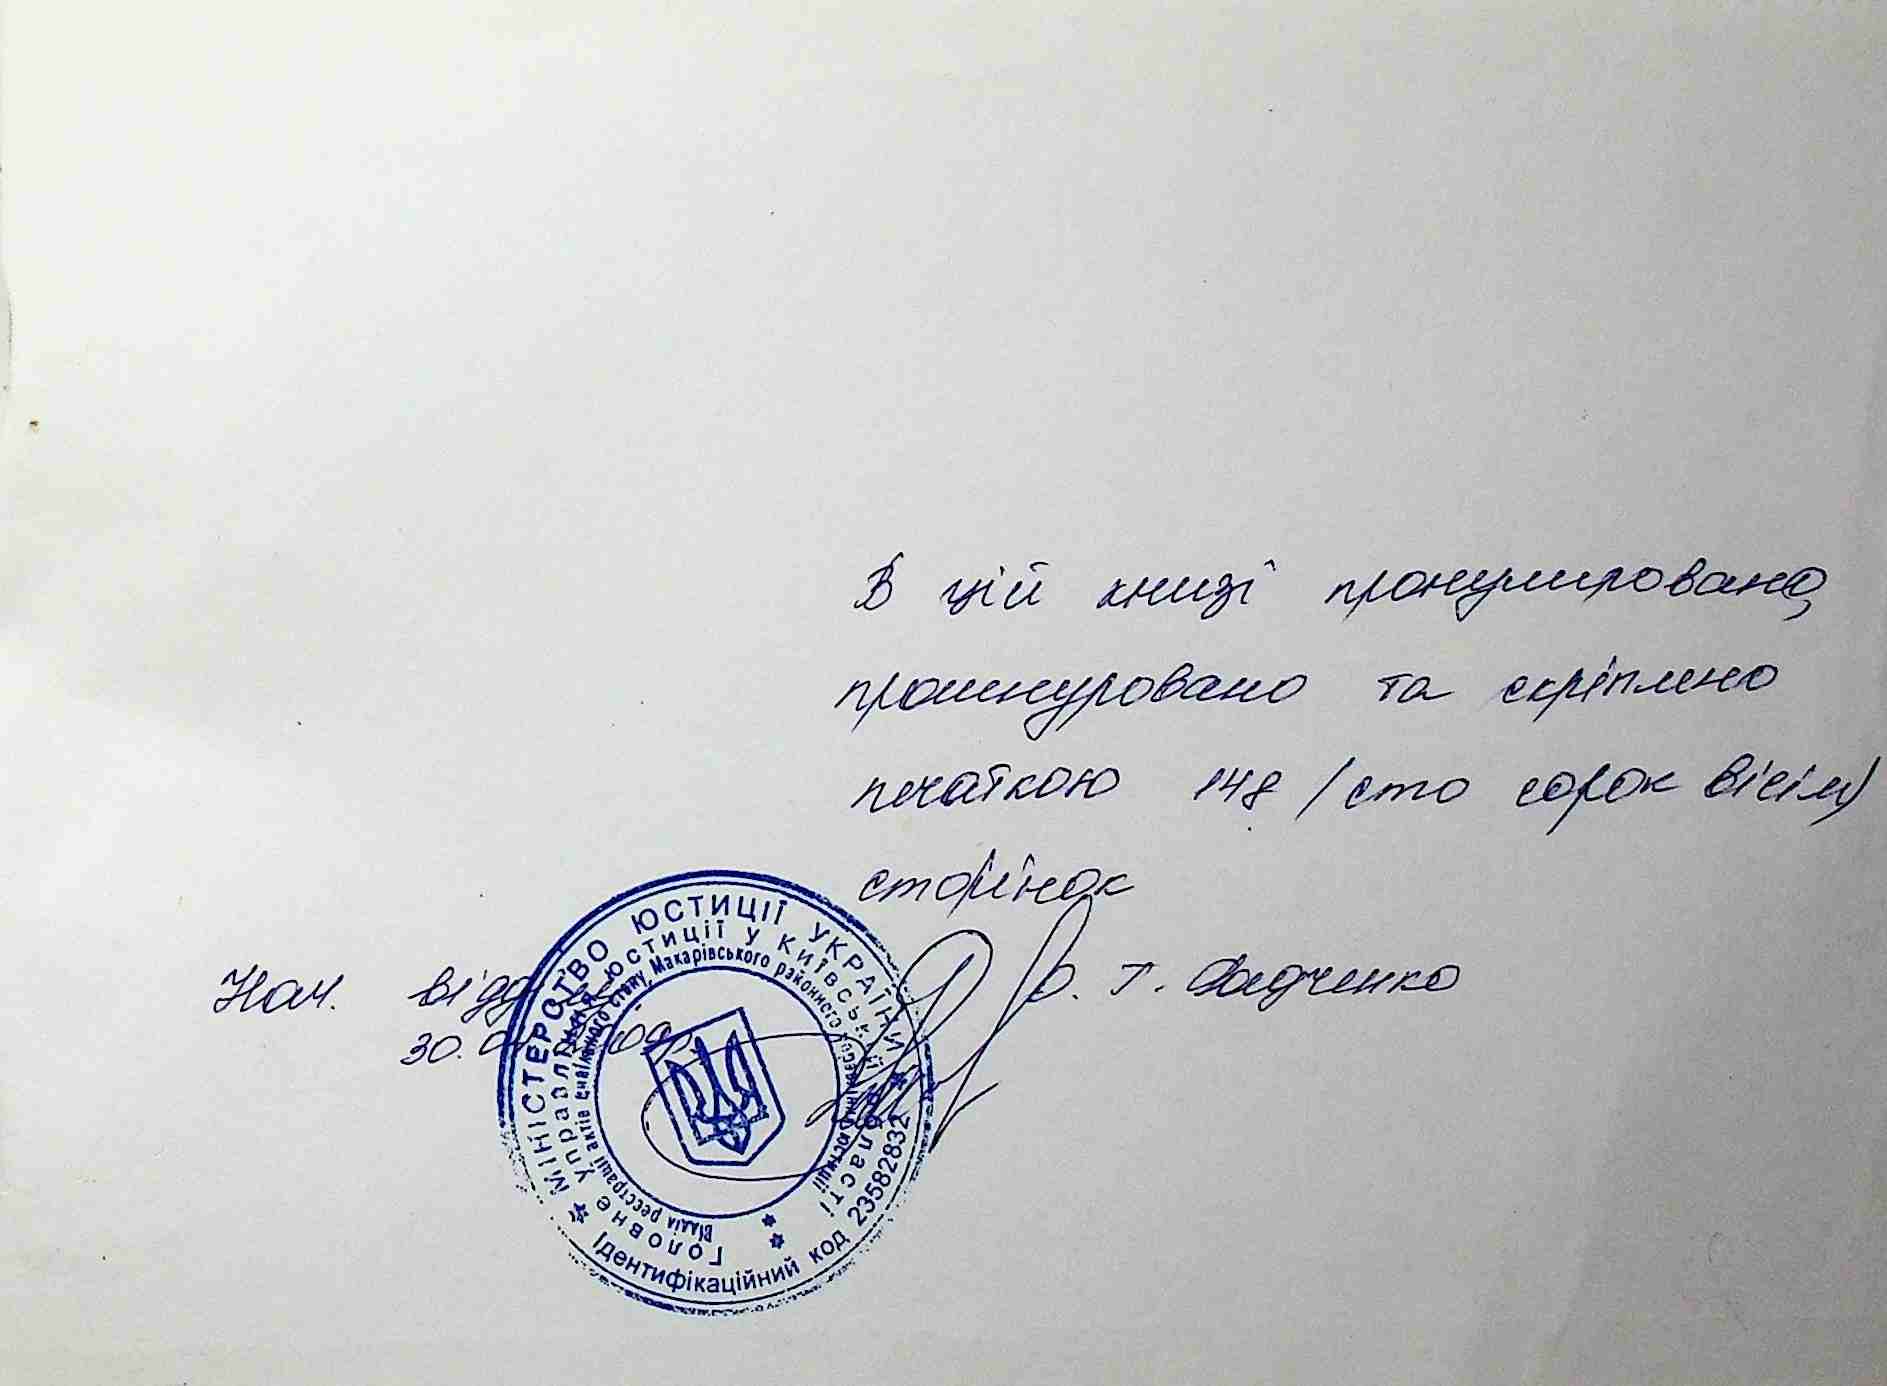 В цій книзі пронумировано,
прошнуровано та скріплено
печаткою 148 /сто сорок вісім/
сторінок
Нач. відділу О. Г.
30.
МІНІСТЕРСТВО ЮСТИЦІЇ УКРАЇНИ
Головне управління юстиції у Київській області
Відділ реєстрації актів цивільного стану Макарівського районного управління юстиції
Ідентифікаційний код 23582832